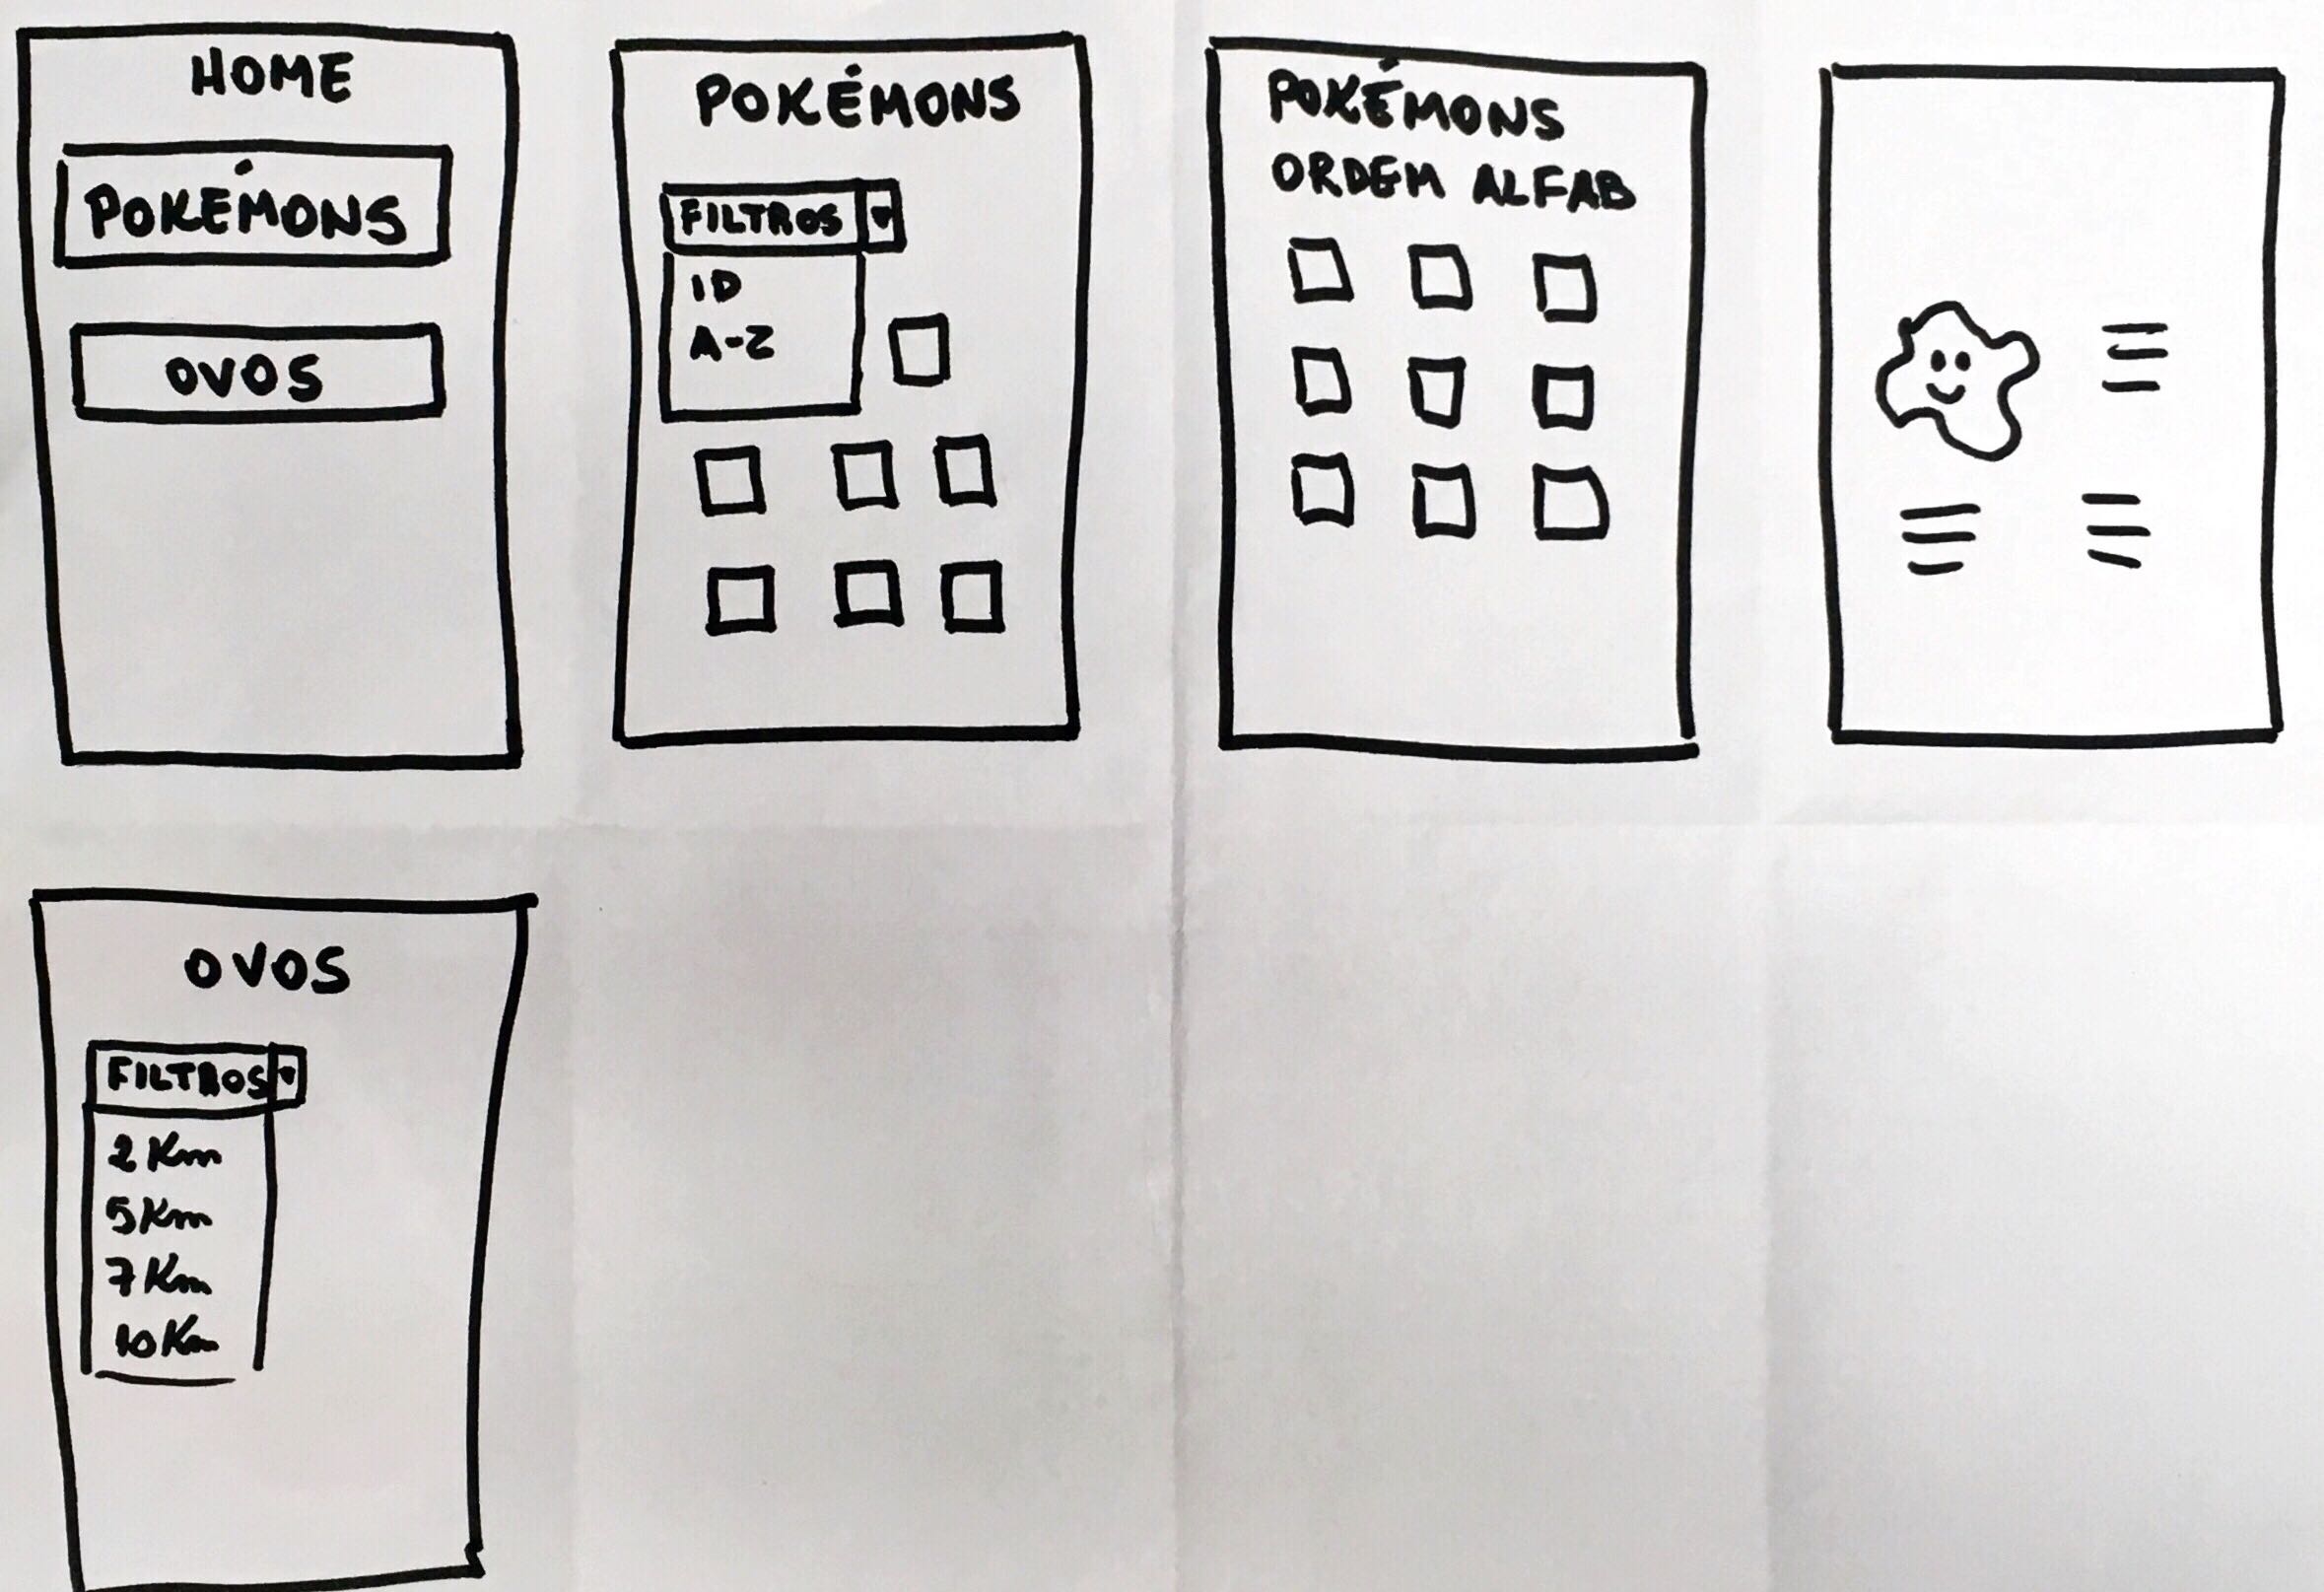 HOME
POKÉMONS
OVOS
POKÉMONS
FILTROS
ID
A-Z
POKÉMONS
ORDEM ALFAB
OVOS
FILTROS
2 Km
5 Km
7 Km
10 Km